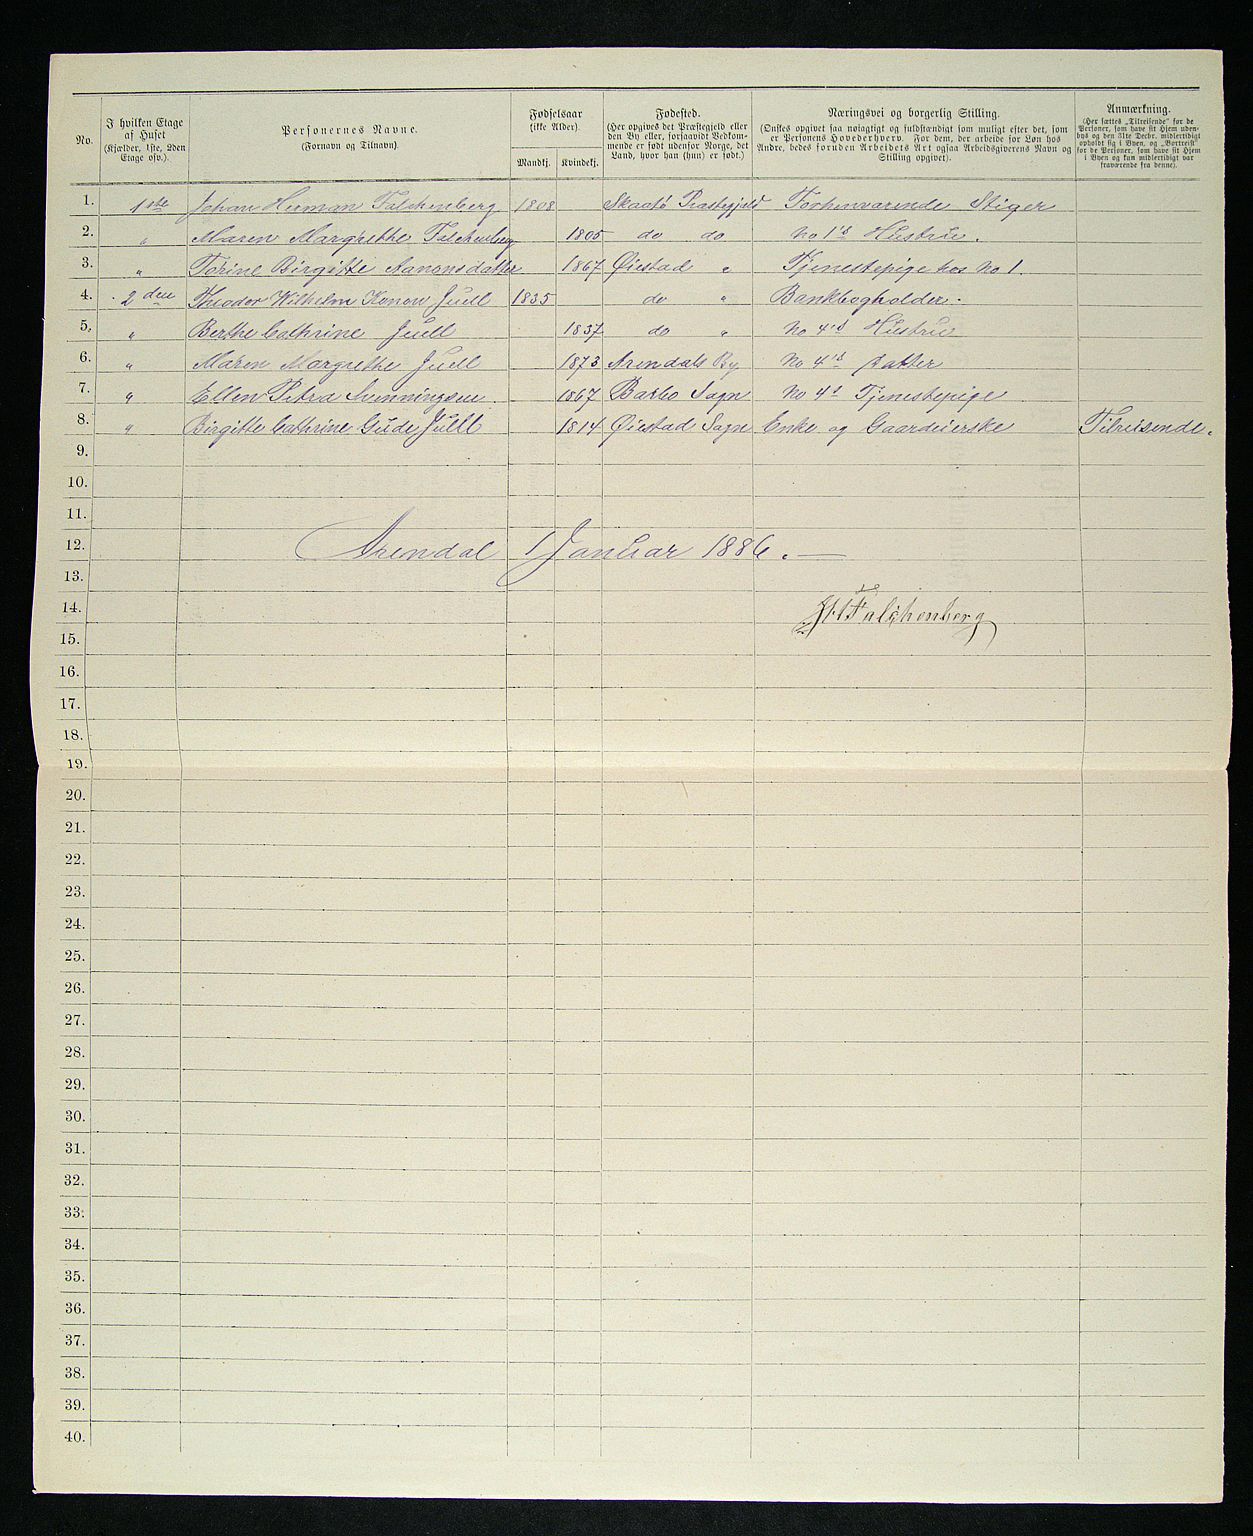 No.
I hvilken Etage
af Huset
(Kjælder, 1ste, 2den
Etage osv.).
Personernes Navne.
(Fornavn og Tilnavn).
Fødselsaar
(ikke Alder).
Mandkj.
Kvindekj.
Fødested.
(Her opgives det Præstegjeld eller
den By eller, forsaavidt Vedkom-
mende er født udenfor Norge, det
Land, hvor han (hun) er født.)
Næringsvei og borgerlig Stilling.
(Ønskes opgivet saa nøiagtigt og fuldstændigt som muligt efter det, som
er Personens Hovederhverv. For dem, der arbeide for Løn hos
Andre, bedes foruden Arbeidets Art ogsaa Arbeidsgiverens Navn og
Stilling opgivet).
Anmærkning.
(Her sættes „Tilreisende“ for de
Personer, som have sit Hjem uden-
bys og den 31te Decbr. midlertidigt
opholdt sig i Byen, og „Bortreist“
for de Personer, som have sit Hjem
i Byen og kun midlertidigt var
fraværende fra denne).
1. 1ste Johan Herman Falchenberg 1808 Skaatø Prastegjeld Forhenvarende Stiger
2. " Maren Margrethe Falchenberg 1805 do do No 1's Hustru.
3. " Torine Birgitte Aanonsdatter 1867 Øiestad " Tjenestepige hos No 1.
4. 2den Theodor Wilhelm Konow Juell 1835 do " Bankbogholder.
5. " Berthe Cathrine Juell 1837 do " No 4's Hustru
6. " Maren Margrethe Juell 1873 Arendals By No 4's Datter
7. " Ellen Petra 1867 Barbo Sogn No 4s Tjenestepige
8. " Birgitte Cathrine Gude Juell 1814 Øiestad Sogn Enke og Gaardeierske Tilreisende.
9.
10.
11.
12. Arendal 1 Januar 1886. —
13.
14. JHFalchenberg
15.
16.
17.
18.
19.
20.
21.
22.
23.
24.
25.
26.
27.
28.
29.
30.
31.
32.
33.
34.
35.
36.
37.
38.
39.
40.